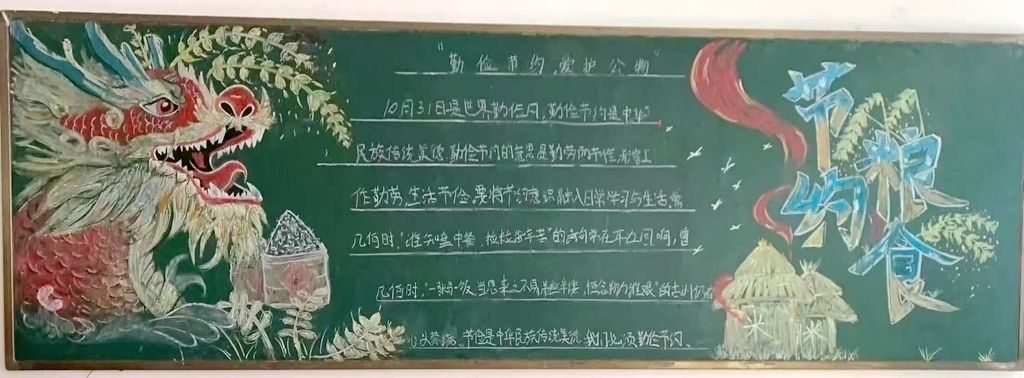 "勤俭节约,爱护公物"
10月31日是世界勤俭日,勤俭节约是中华
民族传统美德,勤俭节约的意思是勤劳而节俭,
作勤劳,生活节俭,要将节约意识融入日常学习与生活,曾
几何时,"谁知盘中餐,粒粒皆辛苦"的声音常在耳边回响,曾
几何时,"一粥一饭,当思来之不易,半丝半缕,恒念物力维艰"的
节俭是中华民族传统美德,我们必须勤俭节约。
节约
粮食